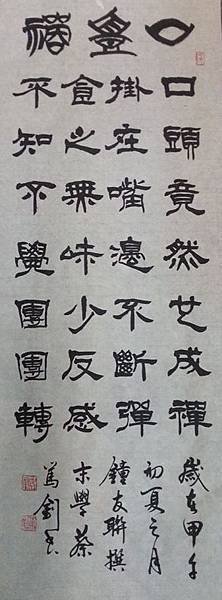 口頭竟然也成禪
掛在嘴邊不斷彈
食之無味少反感
不知不覺團團轉
歲在甲午
初夏之月
鐘友聯撰
末學蔡
篤釗書